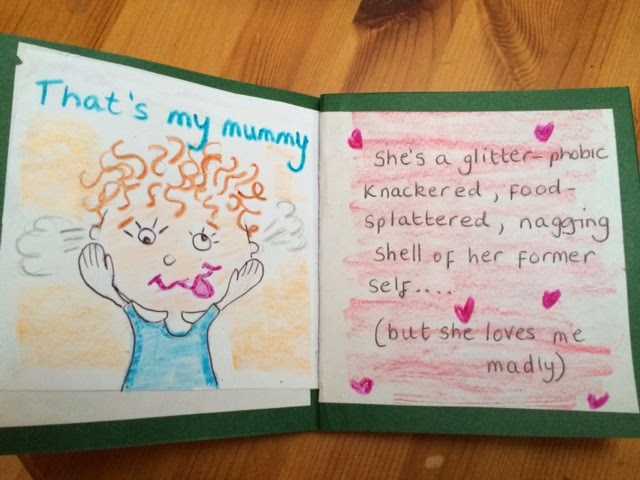 That's my mummy
She's a glitter-phobic
knackered, food-
splattered, nagging
shell of her former
self....
(but she loves me
madly)